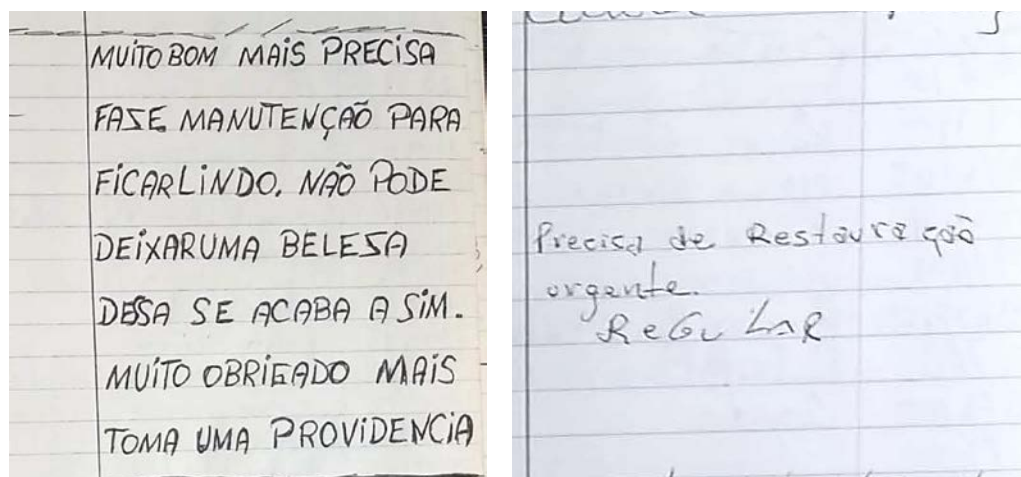 MUiTO BOM MAiS PRECiSA
FASE MANUTENÇÃO PARA
FiCARLiNDO. NÃO PODE
DEiXARUMA BELESA
DESSA SE ACABA A SiM.
MUiTO OBRiGADO MAiS
TOMA UMA PROViDENCiA
Precisa de Restauração
urgente.
ReGuLAR